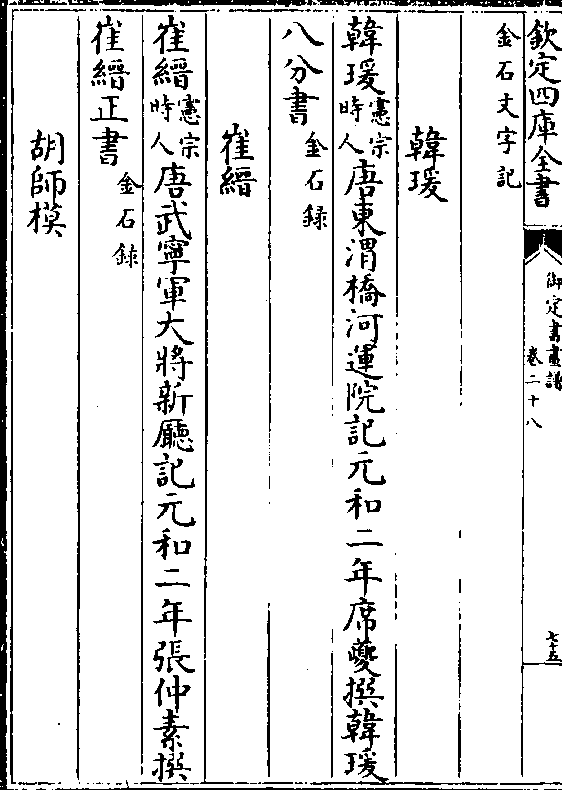 欽定四庫全書
御定書畫譜
卷二十八
七十五
金石文字記
韓瑗
韓瑗憲宗時人唐東渭橋河運院記元和二年席夔撰韓瑗
八分書金石録
崔縉
崔縉憲宗時人唐武寧軍大將新廳記元和二年張仲素撰
崔縉正書金石録
胡師模